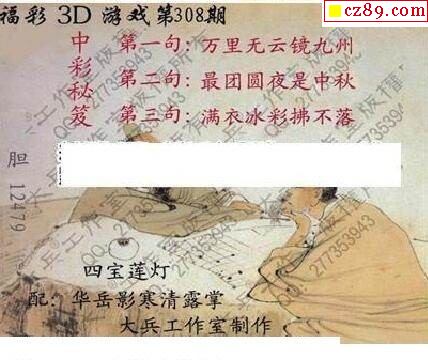 cz89.com
福彩3D游戏第308期
中彩秘笈
第一句：万里无云镜九州
第二句：最团圆夜是中秋
第三句：满衣冰彩拂不落
胆 12479
四宝莲灯
配：华岳影寒清露掌
大兵工作室制作
QQ:277353943